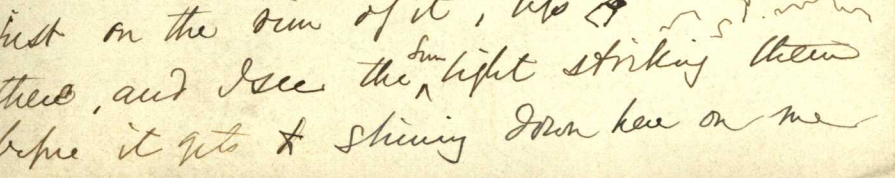 just on the rim of it, up
there, and I see the sun light striking them
before it gets to shining down here on me